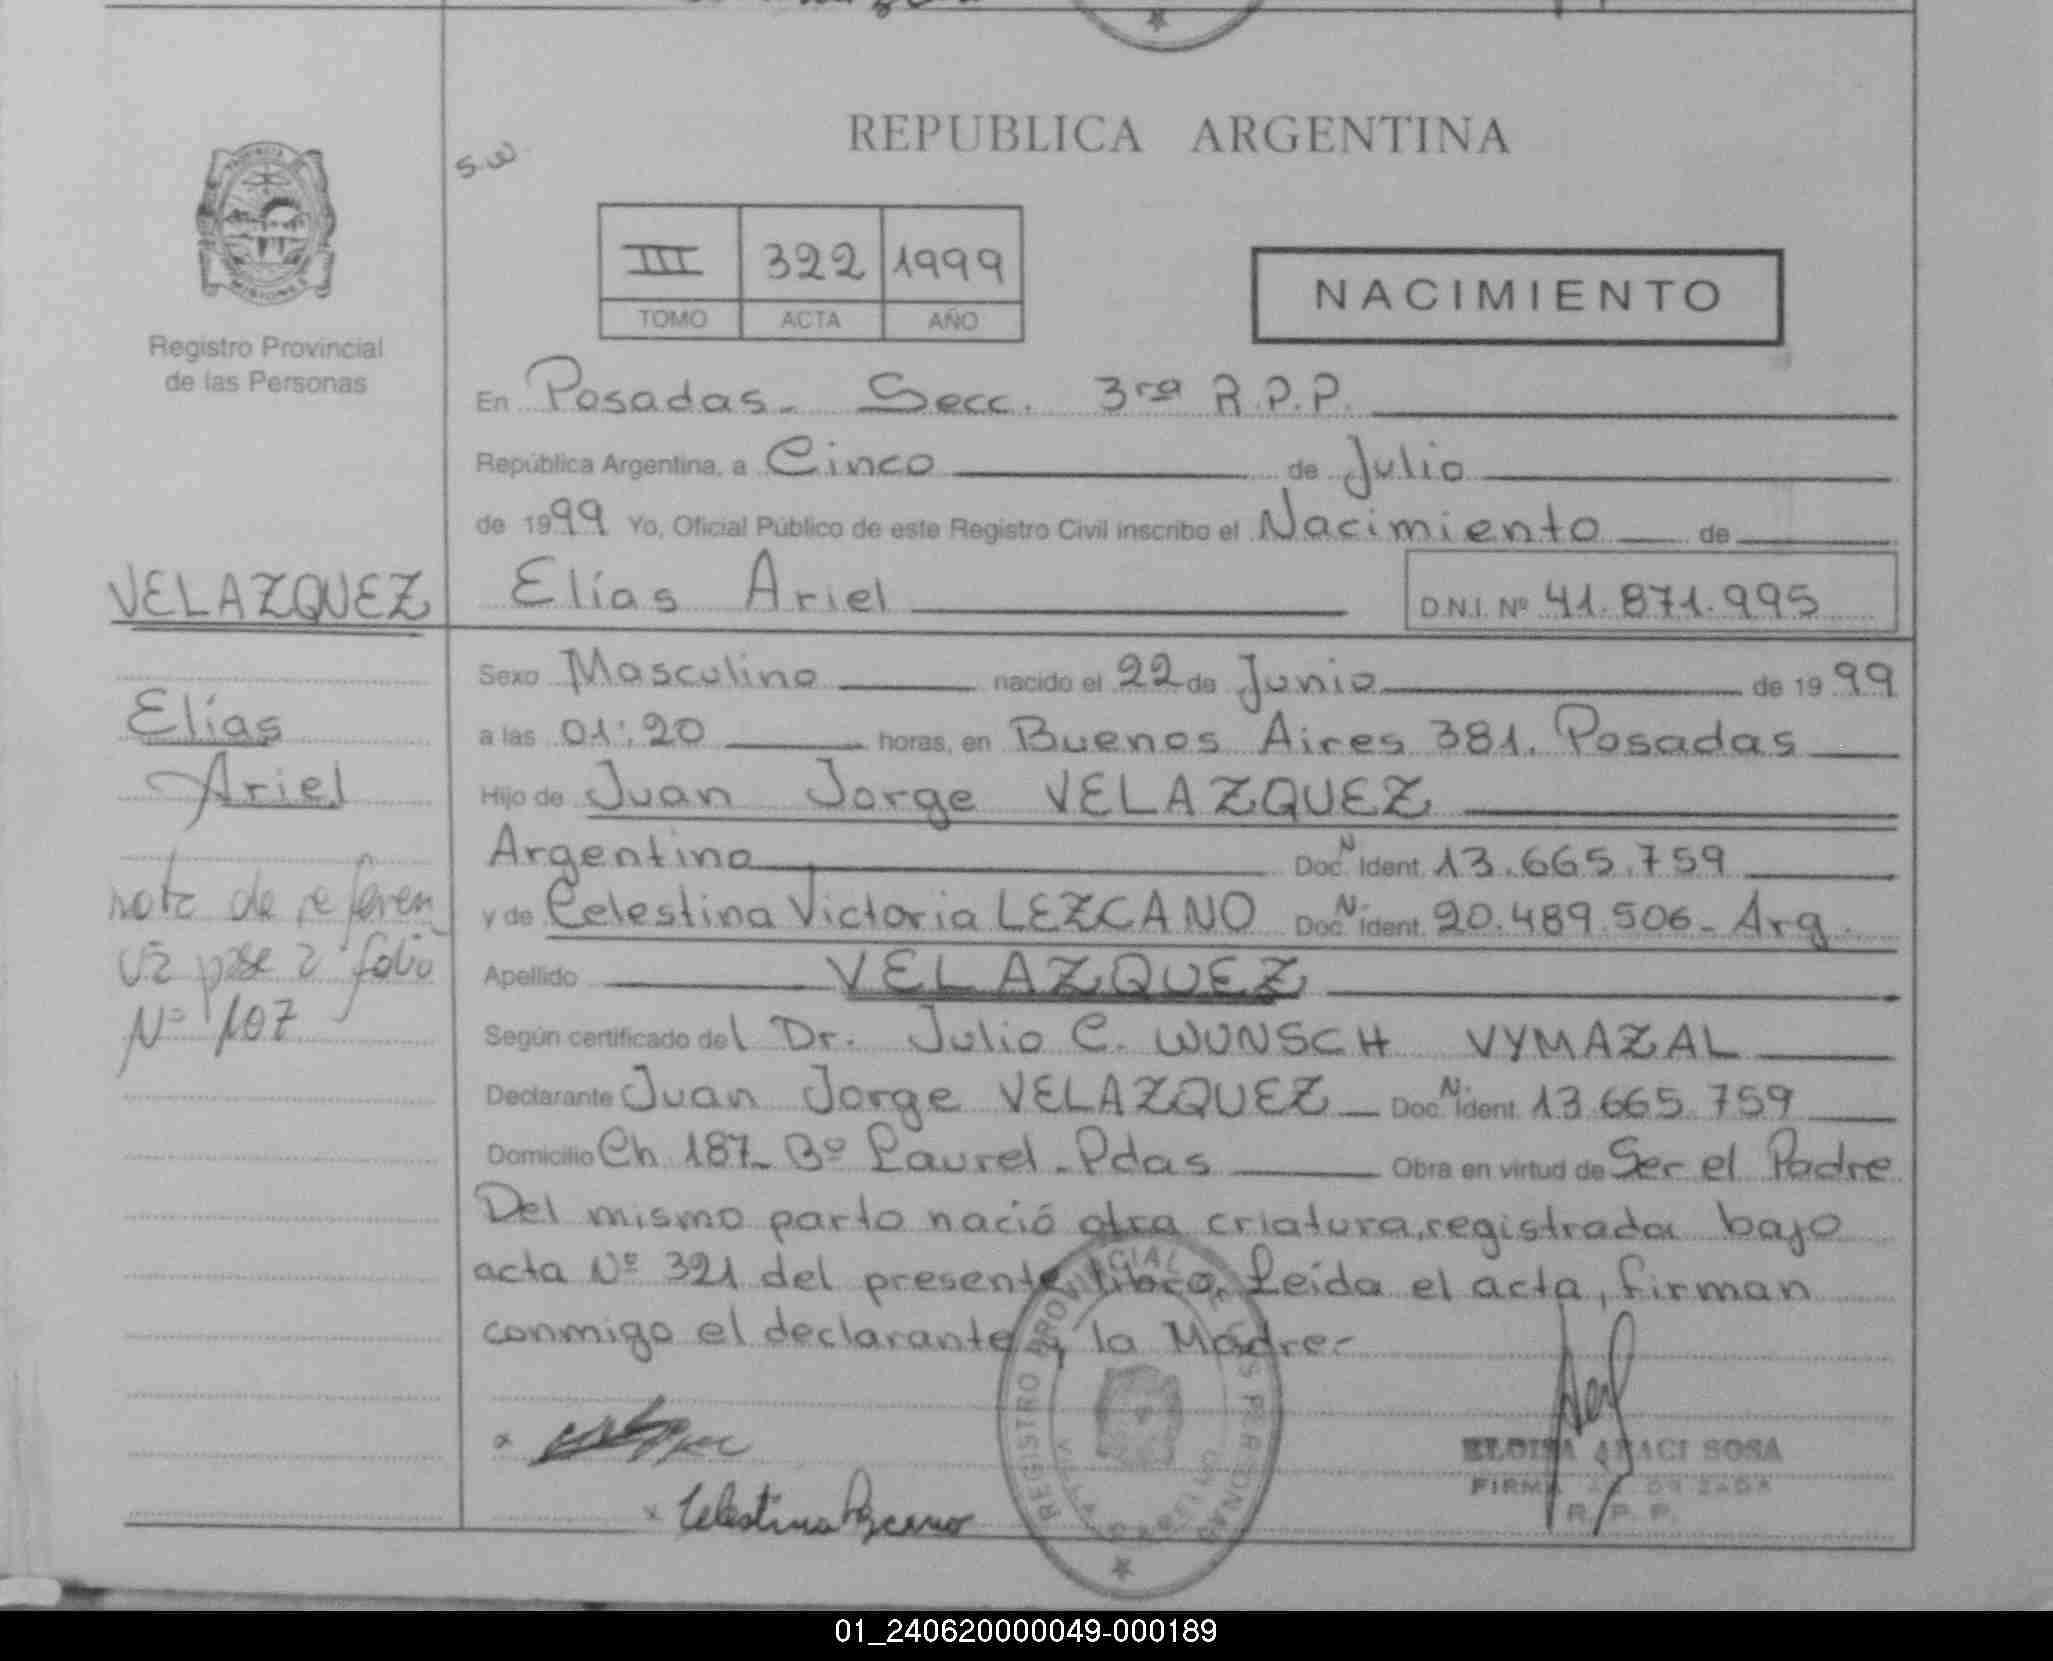 REPUBLICA ARGENTINA
S.W
III 322 1999
TOMO ACTA AÑO
NACIMIENTO
PROVINCIA
MISIONES
Registro Provincial
de las Personas
En Posadas - Secc. 3ra R.P.P.
República Argentina, a Cinco de Julio
de 1999 Yo, Oficial Público de este Registro Civil inscribo el Nacimiento de
VELAZQUEZ
Elías Ariel D.N.I. Nº 41.871.995
Sexo Masculino nacido el 22 de Junio de 1999
Elías
a las 01:20 horas, en Buenos Aires 381. Posadas
Ariel
Hijo de Juan Jorge VELAZQUEZ
Argentino Doc. N Ident. 13.665.759
nota de referen
y de Celestina Victoria LEZCANO Doc. N. Ident. 20.489.506 - Arg.
pase a folio
Apellido VELAZQUEZ
Nº 107
Según certificado del Dr. Julio C. WUNSCH VYMAZAL
Declarante Juan Jorge VELAZQUEZ Doc. N. Ident. 13.665.759
Domicilio Ch 187 - Bº Laurel - Pdas Obra en virtud de Ser el Padre
Del mismo parto nació otra criatura, registrada bajo
acta Nº 321 del presente libro. Leída el acta, firman
conmigo el declarante y la Madre-
REGISTRO PROVINCIAL DE LAS PERSONAS
VILLA CABELLO
x
x Celestina Lezcano
ELOISA ARACI SOSA
FIRMA AUTORIZADA
R. P. P.
01_240620000049-000189